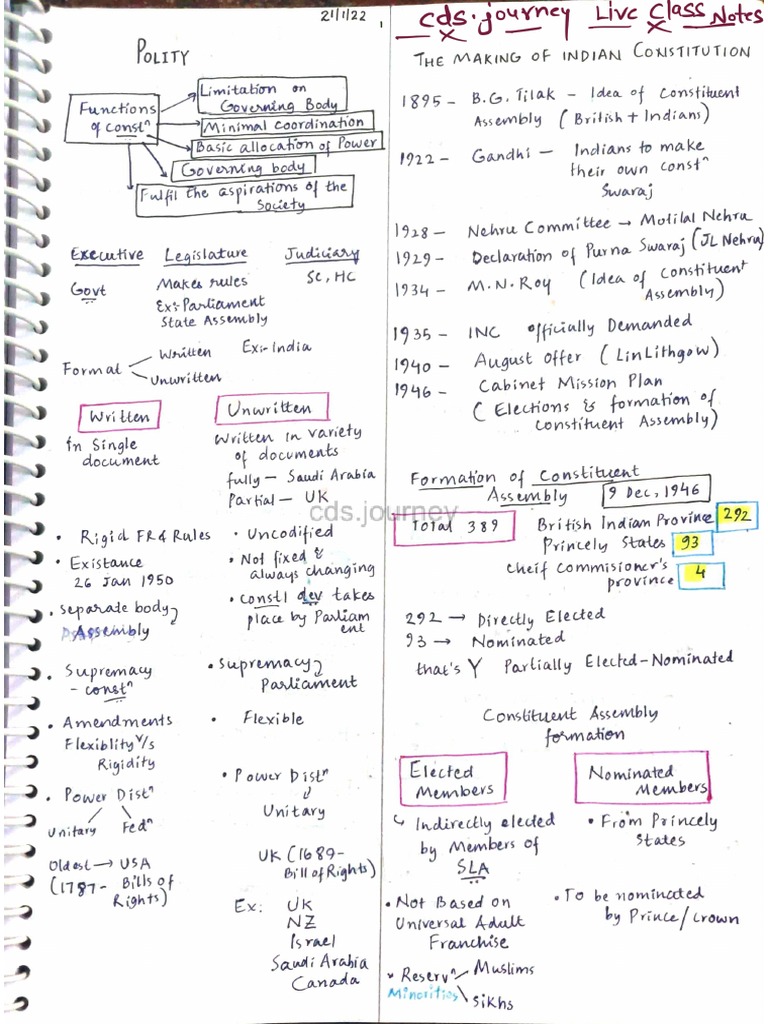 21/1/22
1
POLITY
Functions of constⁿ
Limitation on Governing Body
Minimal coordination
Basic allocation of Power
Governing body
Fulfil the aspirations of the Society
Executive Legislature Judiciary
Govt Makes rules SC, HC
Ex:- Parliament
State Assembly
Formal Written Ex:- India
Unwritten
Written Unwritten
in Single document
Written in variety of documents
fully — Saudi Arabia
Partial — UK
• Rigid FR & Rules
• Uncodified
• Existance 26 Jan 1950
• Not fixed & always changing
• separate body Assembly
• constl dev takes place by Parliament
• Supremacy - constⁿ
• Supremacy Parliament
• Amendments Flexiblity v/s Rigidity
• Flexible
• Power Distⁿ
Unitary Fedⁿ
• Power Distⁿ
Unitary
Oldest → USA
(1787 - Bills of Rights)
UK (1689 - Bill of Rights)
Ex: UK
NZ
Israel
Saudi Arabia
Canada
cds.journey
cds.journey Live Class Notes
THE MAKING OF INDIAN CONSTITUTION
1895 - B.G. Tilak - Idea of Constituent
Assembly (British + Indians)
1922 - Gandhi — Indians to make
their own constⁿ
Swaraj
1928 - Nehru Committee → Motilal Nehru
1929 - Declaration of Purna Swaraj (JL Nehru)
1934 - M.N. Roy (Idea of Constituent
Assembly)
1935 - INC officially Demanded
1940 - August Offer (LinLithgow)
1946 - Cabinet Mission Plan
(Elections & formation of
Constituent Assembly)
Formation of Constituent
Assembly 9 Dec, 1946
Total 389 British Indian Province 292
Princely States 93
cheif commisioner's
province 4
292 → Directly Elected
93 → Nominated
that's Y Partially Elected-Nominated
Constituent Assembly
formation
Elected Members Nominated Members
↳ Indirectly elected
by Members of
SLA
• From Princely
States
• Not Based on
Universal Adult
Franchise
• To be nominated
by Prince/Crown
• Reservⁿ Muslims
Minorities Sikhs